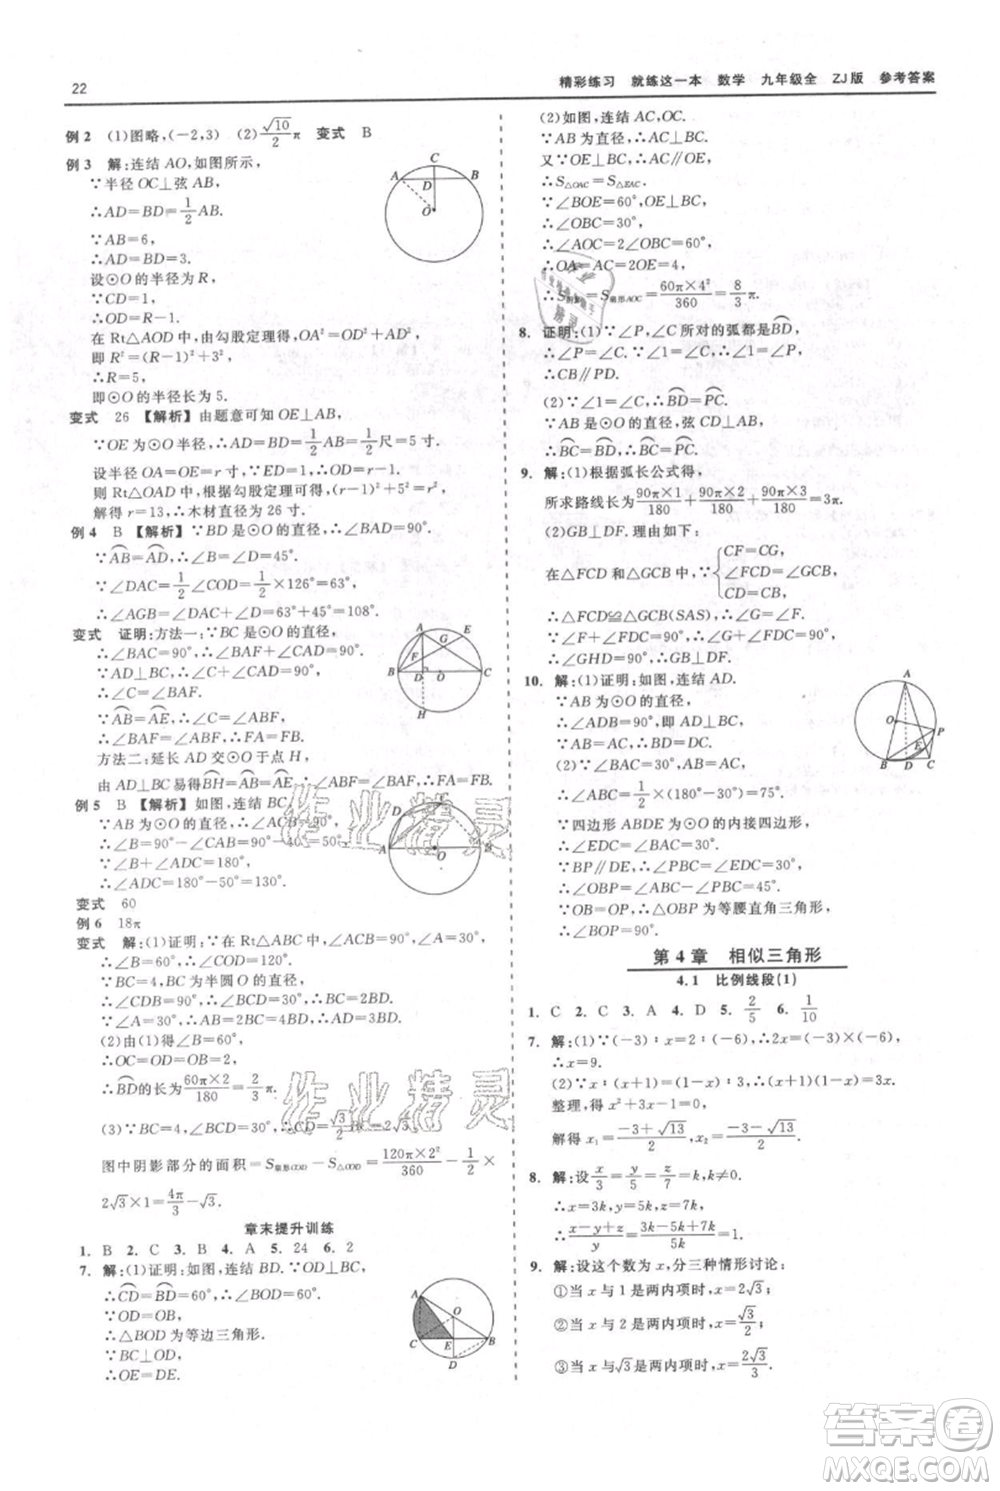 22
精彩练习 就练这一本 数学 九年级全 ZJ版 参考答案
例2 (1)图略,(-2,3) (2)√10/2 π 变式 B
例3 解:连结AO,如图所示,
∵半径OC⊥弦AB,
∴AD=BD=1/2 AB,
∵AB=6,
∴AD=3,
设⊙O的半径为R,
∵CD=1,
∴OD=R-1,
在Rt△AOD中,由勾股定理得,OA²=OD²+AD²,
即R²=(R-1)²+3²,
∴R=5,
即⊙O的半径长为5.
变式 26 【解析】由题意可知OE⊥AB,
∵OE为⊙O半径,∴AD=BD=1/2 AB=1/2尺=5寸,
设半径OA=OE=r寸,∵ED=1,∴OD=r-1,
则Rt△OAD中,根据勾股定理可得(r-1)²+5²=r²,
解得r=13,∴木材直径为26寸.
例4 B 【解析】∵BD是⊙O的直径,∴∠BAD=90°,
∵⌒AB=⌒AD,∴∠B=∠D=45°,
∵∠DAC=1/2∠COD=1/2×126°=63°,
∴∠AGB=∠DAC+∠D=63°+45°=108°.
变式 证明:方法一:∵BC是⊙O的直径,
∴∠BAC=90°,∴∠BAF+∠CAD=90°,
∵AD⊥BC,∴∠C+∠CAD=90°,
∴∠C=∠BAF,
∵⌒AB=⌒AE,∴∠C=∠ABF,
∴∠BAF=∠ABF,∴FA=FB.
方法二:延长AD交⊙O于点H,
由AD⊥BC易得⌒HB=⌒AB=⌒AE,∴FA=FB.
例5 B 【解析】如图,连结BC,
∵AB为⊙O的直径,∴∠ACB=90°,
∴∠B=90°-∠CAB=90°-40°=50°,
∵∠B+∠ADC=180°,
∴∠ADC=180°-50°=130°.
变式 60
例6 18π
变式 解:(1)证明:∵在Rt△ABC中,∠ACB=90°,∠A=30°,
∴∠B=60°,
∵BC=4,BC为半圆O的直径,
∴∠CDB=90°,∴∠BCD=30°,
∴BD=1/2 BC=2.
(2)由(1)得∠B=60°.
∴OC=OD=OB=2,
∴⌒BD的长为60π×2/180=2/3 π.
(3)∵BC=4,∠BCD=30°,∴CD=√3/2 BC=2√3,
图中阴影部分的面积=S扇形COD-S△COD=120π×2²/360-1/2×
2√3×1=4π/3-√3.
章末提升训练
1. B 2. C 3. B 4. A 5. 24 6. 2
7. 解:(1)证明:如图,连结BD.
∴⌒CD=⌒BD=60°,∴∠BOD=60°,
∵OD=OB,
∴△BOD为等边三角形,
∵BC⊥OD,
∴OE=DE.
(2)如图,连结OA,
∵AB为直径,∴AC⊥BC,
又∵OE⊥BC,∴AC∥OE,
∴S△OAC=S△EAC.
∵∠BOE=60°,OE⊥BC,
∴∠OBC=30°,
∴∠AOC=2∠OBC=60°,
∴OA=2OE=4,
∴S阴影=S扇形AOC=60π×4²/360=8/3 π.
8. 证明:(1)∵∠P,∠C所对的弧都是⌒BD,
∴∠C=∠P,∵∠1=∠C,∴∠1=∠P,
∴CB∥PD.
(2)∵∠1=∠C,∴⌒PB=⌒PC,
∵AB是⊙O的直径,CD⊥AB,
∴⌒BC=⌒BD,∴⌒PC=⌒BD.
9. 解:(1)根据弧长公式得,
所求路线长为90π×1/180+90π×2/180+90π×3/180=3π.
(2)GB⊥DF.理由如下:
在△FCD和△GCB中,∵{CF=CG,
∠FCD=∠GCB=90°,
CD=CB,
∴△FCD≌△GCB(SAS),∴∠G=∠F,
∵∠F+∠FDC=90°,∴∠G+∠FDC=90°,
∴∠GHD=90°,∴GB⊥DF.
10. 解:(1)证明:如图,连结AD.
∵AB为⊙O的直径,
∴∠ADB=90°,即AD⊥BC,
∵AB=AC,∴BD=DC.
(2)∵∠BAC=30°,AB=AC,
∴∠ABC=1/2×(180°-30°)=75°.
∵四边形ABDE为⊙O的内接四边形,
∴∠EDC=∠BAC=30°,
∵BP∥DE,∴∠PBC=∠EDC=30°,
∴∠OBP=∠ABC-∠PBC=45°.
∵OB=OP,∴△OBP为等腰直角三角形,
∴∠BOP=90°.
第4章 相似三角形
4.1 比例线段(1)
1. C 2. C 3. A 4. D 5. 2/5 6. 1/10
7. 解:(1)∵(-3):x=2:(-6),∴2x=(-3)×(-6),
∴x=9.
(2)∵x:(x+1)=(1-x):3,∴(x+1)(1-x)=3x.
整理,得x²+3x-1=0,
解得x₁=(-3+√13)/2,x₂=(-3-√13)/2.
8. 解:设x/3=y/5=z/7=k,
∴x=3k,y=5k,z=7k,
∴(x-y+z)/(x+y-z)=(3k-5k+7k)/(3k+5k-7k)=5.
9. 解:设这个数为x,分三种情形讨论:
①当x与1是两内项时,x=2√3;
②当x与2是两内项时,x=√3/2;
③当x与√3是两内项时,x=2√3/3.